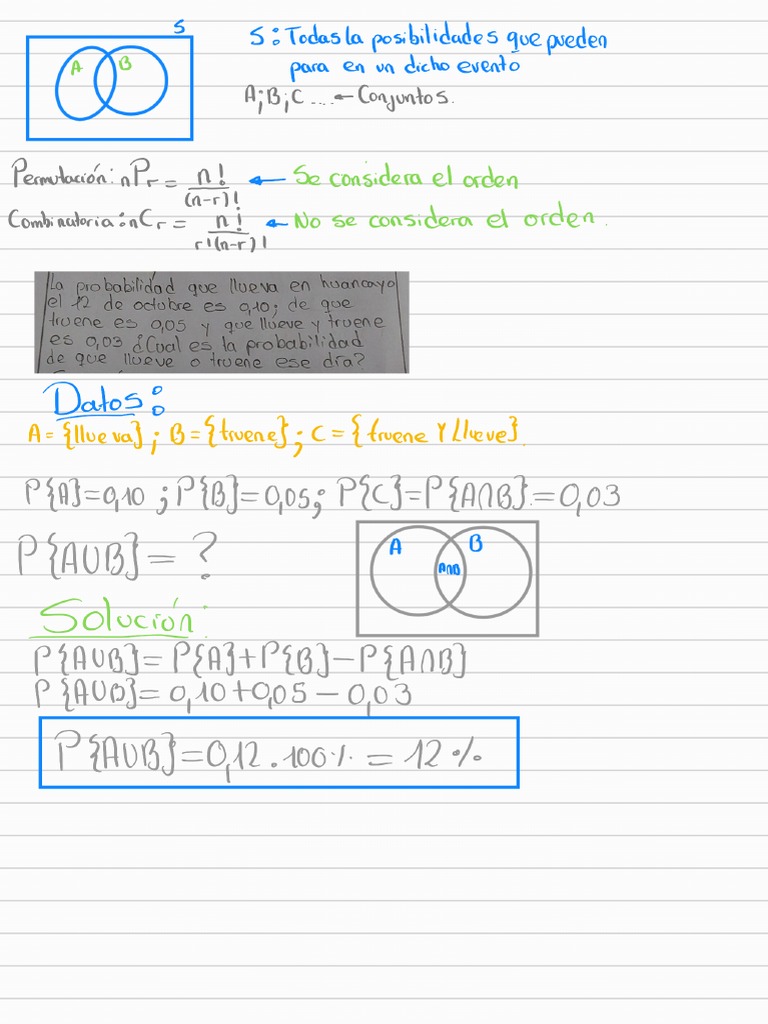 S
A B
S: Todas la posibilidades que pueden
para en un dicho evento
A; B; C .... ← Conjuntos.
Permutación: nPr = n!/(n-r)! ← Se considera el orden
Combinatoria: nCr = n!/r!(n-r)! ← No se considera el orden.
La probabilidad que llueva en huancayo
el 12 de octubre es 0,10; de que
truene es 0,05 y que llueve y truene
es 0,03 ¿Cual es la probabilidad
de que llueve o truene ese día?
Datos:
A = {llueva}; B = {truene}; C = {truene Y LLueve}.
P{A}=0,10 ; P{B}=0,05; P{C}=P{A∩B}=0,03
P{A∪B} = ?
A B
A∩B
Solución:
P{A∪B} = P{A}+P{B}-P{A∩B}
P{A∪B} = 0,10+0,05-0,03
P{A∪B}=0,12.100% = 12%